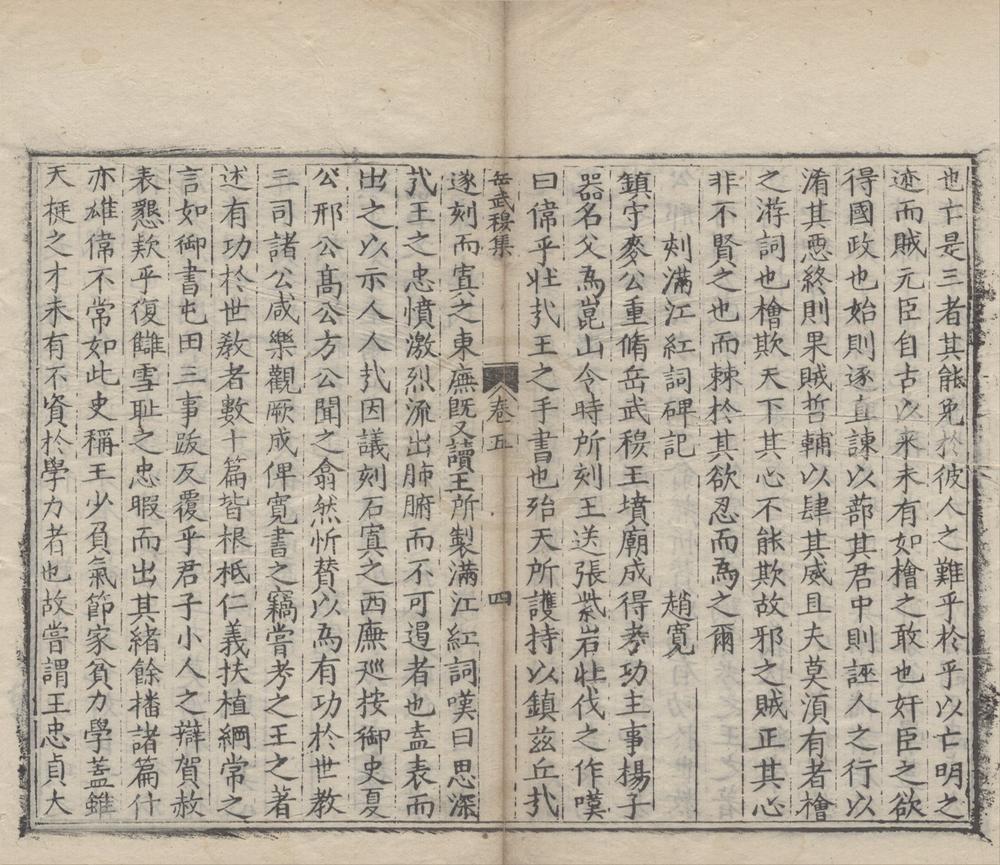 也亡是三者其能免於彼人之難乎於乎以亡明之
迹而賊元臣自古以来未有如檜之敢也奸臣之欲
得國政也始則逐直諫以蔀其君中則誣人之行以
淆其惡終則果賊哲輔以肆其威且夫莫湏有者檜
之游詞也檜欺天下其心不能欺故邪之賊正其心
非不賢之也而棘於其欲忍而為之爾
刻滿江紅詞碑記 趙寛
鎮守麥公重脩岳武穆王墳廟成得考功主事楊子
器名父為崑山令時所刻王送張紫岩壮伐之作嘆
曰偉乎壮㢤王之手書也殆天所護持以鎮兹丘㢤
岳武穆集 卷五 四
遂刻而寘之東廡既又讀王所製滿江紅詞嘆曰思深
㢤王之忠憤激烈流出肺腑而不可遏者也盍表而
出之以示人人㢤因議刻石寘之西廡廵按御史夏
公邢公髙公方公聞之翕然忻賛以為有功於世教
三司諸公咸樂觀厥成俾寛書之竊嘗考之王之著
述有功於世敎者數十篇皆根柢仁義扶植綱常之
言如御書屯田三事跋反覆乎君子小人之辯賀赦
表懇欵乎復讎雪耻之忠暇而出其緒餘播諸篇什
亦雄偉不常如此史稱王少負氣節家貧力學盖雖
天挺之才未有不資於學力者也故嘗謂王忠貞大